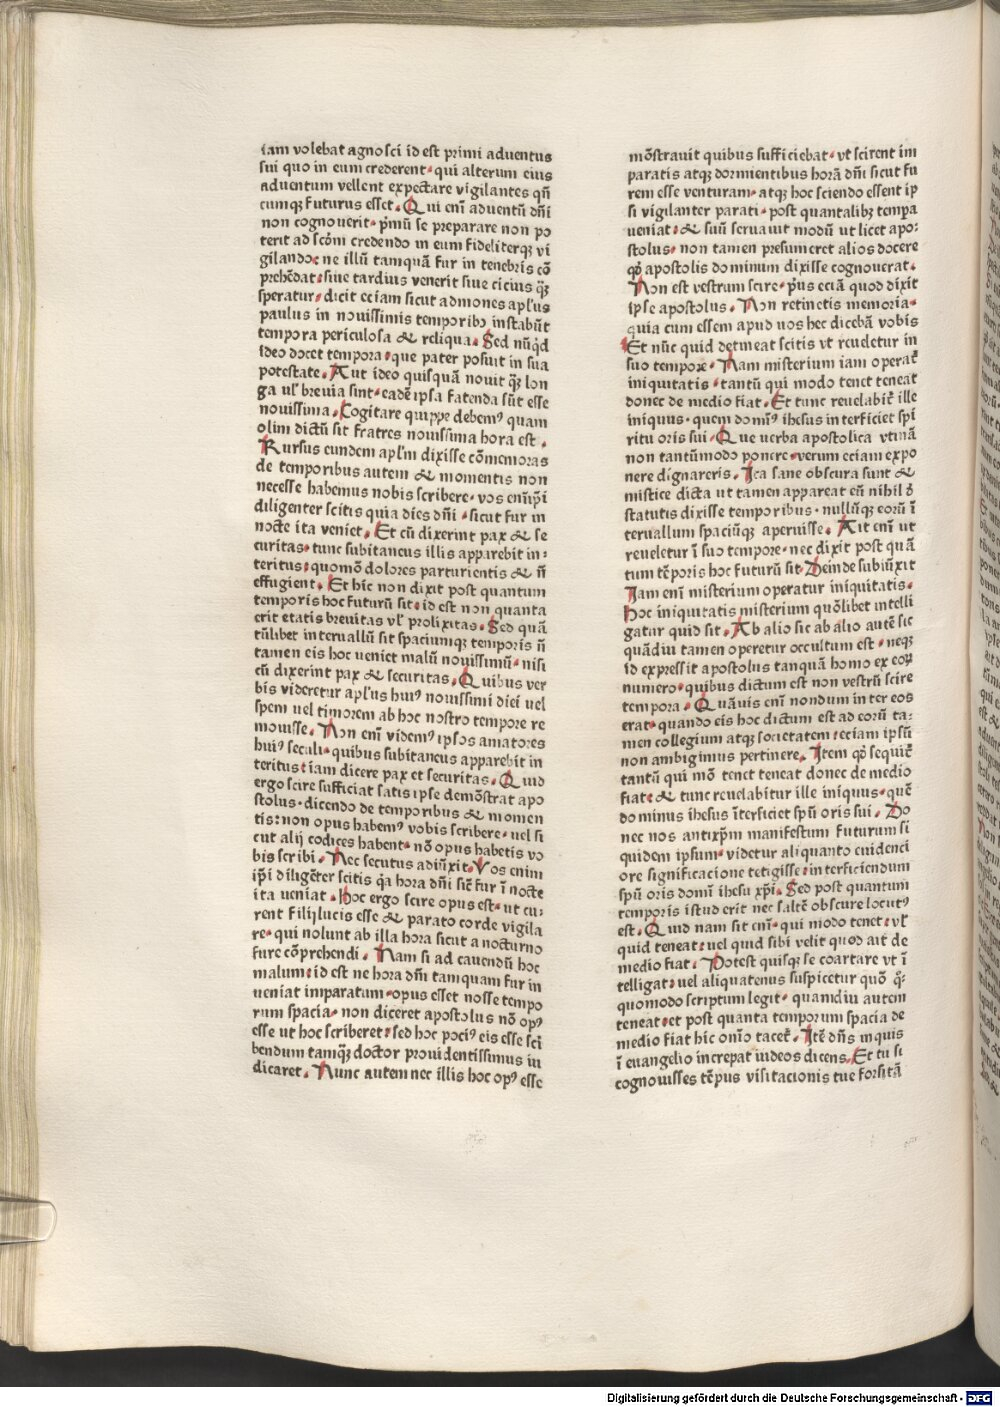 iam volebat agnosci id est primi aduentus
sui quo in eum crederent · qui alterum eius
aduentum vellent expectare vigilantes qñ
cumqꝫ futurus esset . Qui eni aduentū dñi
non cognouerit · pͥmū se preparare non po
terit ad scðm credendo in eum fideliterqꝫ vi
gilando: ne illū tamquā fur in tenebris cō
prehēdat: siue tardius venerit siue cicius qͣꝫ
speratur · dicit eciam sicut admones apl'us
paulus in nouissimis temporibꝫ instabūt
tempora periculosa & reliqua . Sed nūqͥd
ideo docet tempora · que pater posuit in sua
potestate . Aut ideo quisquā nouit qͣꝫ lon
ga ul' breuia sint · eadē ipsa fatenda sūt esse
nouissima . Cogitare quippe debemꝰ quam
olim dictū sit fratres nouissima hora est .
Rursus eundem apl'm dixisse cōmemoras
de temporibus autem & momentis non
necesse habemus nobis scribere · vos enī ip̄i
diligenter scitis quia dies dñi · sicut fur in
nocte ita veniet . Et cū dixerint pax & se
curitas · tunc subitaneus illis apparebit in-
teritus: quomō dolores parturientis & ñ
effugient . Et hic non dixit post quantum
temporis hoc futurū sit · id est non quanta
erit etatis breuitas vl' prolixitas . Sed quā
tūlibet interuallū sit spaciumqꝫ temporis ñ
tamen eis hoc ueniet malū nouissimū · nisi
cū dixerint pax & securitas . Quibus ver
bis videretur apl'us huiꝰ nouissimi diei uel
spem uel timorem ab hoc nostro tempore re
mouisse . Non eni videmꝰ ipsos amatores
huiꝰ seculi · quibus subitaneus apparebit in
teritus: iam dicere pax et securitas . Quid
ergo scire sufficiat satis ipse demōstrat apo
stolus · dicendo de temporibus & momen
tis: non opus habemꝰ vobis scribere · uel si
cut alij codices habent · nō opus habetis vo
bis scribi . Nec secutus adiūxit · Vos enim
ip̄i diligēter scitis qͣ hora dñi sic̄ fur ī nocte
ita ueniat . Hoc ergo scire opus est · ut cu-
rent filij lucis esse & parato corde vigila
re · qui nolunt ab illa hora sicut a nocturno
fure cōprehendi . Nam si ad cauendū hoc
malum: id est ne hora dñi tamquam fur in
ueniat imparatum · opus esset nosse tempo
rum spacia · non diceret apostolus nō opꝰ
esse ut hoc scriberet: sed hoc pociꝰ eis esse scri
bendum tamqͣꝫ doctor prouidentissimus iu
dicaret . Nunc autem nec illis hoc opꝰ esse
mōstrauit quibus sufficiebat · vt scirent im
paratis atqꝫ dormientibus horā dñi sicut fu
rem esse venturam · atqꝫ hoc sciendo essent ip
si vigilanter parati · post quantalibꝫ tempora
ueniat: & suū seruauit modū ut licet apo-
stolus · non tamen presumeret alios docere
qð apostolis dominum dixisse cognouerat .
Non est vestrum scire · pͥus eciā quod dixit
ipse apostolus . Non retinetis memoria ·
quia cum essem apud uos hec dicebā vobis
Et nūc quid detineat scitis vt reueletur in
suo tempore · Nam misterium iam operat̄
iniquitatis · tantū qui modo tenet teneat
donec de medio fiat . Et tunc reuelabit̄ ille
iniquus · quem domīꝰ ihesus interficiet spi
ritu oris sui . Que uerba apostolica vtinā
non tantūmodo ponere · verum eciam expo
nere dignareris . Ita sane obscura sunt &
mistice dicta ut tamen appareat eū nihil ð
statutis dixisse temporibus · nullūqꝫ eorū ī
teruallum spaciūqꝫ aperuisse . Ait eni ut
reueletur ī suo tempore · nec dixit post quā
tum tēporis hoc futurū sit . Deinde subiūxit
Iam eni misterium operatur iniquitatis .
Hoc iniquitatis misterium quōlibet intelli
gatur quid sit . Ab alio sic ab alio autē sic
quādiu tamen operetur occultum est · neqꝫ
id expressit apostolus tanquā homo ex eoꝝ
numero · quibus dictum est non vestrū scire
tempora . Quāuis eni nondum inter eos
erat · quando eis hoc dictum est ad eorū ta-
men collegium atqꝫ societatem: eciam ipsū
non ambigimus pertinere . Item qð sequit̄
tantū qui mō tenet teneat donec de medio
fiat: & tunc reuelabitur ille iniquus · quē
dominus ihesus īterficiet spū oris sui . Do
nec nos antixp̄m manifestum futurum si
quidem ipsum · videtur aliquanto euidenci
ore significacione tetigisse: interficiendum
spū oris domī ihesu xp̄i . Sed post quantum
temporis istud erit nec saltē obscure locutꝰ
est . Quid nam sit eni · qui modo tenet: vl'
quid teneat: uel quid sibi velit quod ait de
medio fiat . Potest quisqꝫ se coartare vt ī
telligat: uel aliquatenus suspicetur quō qͥ·
quomodo scriptum legit · quamdiu autem
teneat: et post quanta temporum spacia de
medio fiat hic onīo tacet̄ . Itē dñs inquis
ī euangelio increpat iudeos dicens . Et tu si
cognouisses tēpus visitacionis tue forsitā
Digitalisierung gefördert durch die Deutsche Forschungsgemeinschaft - DFG